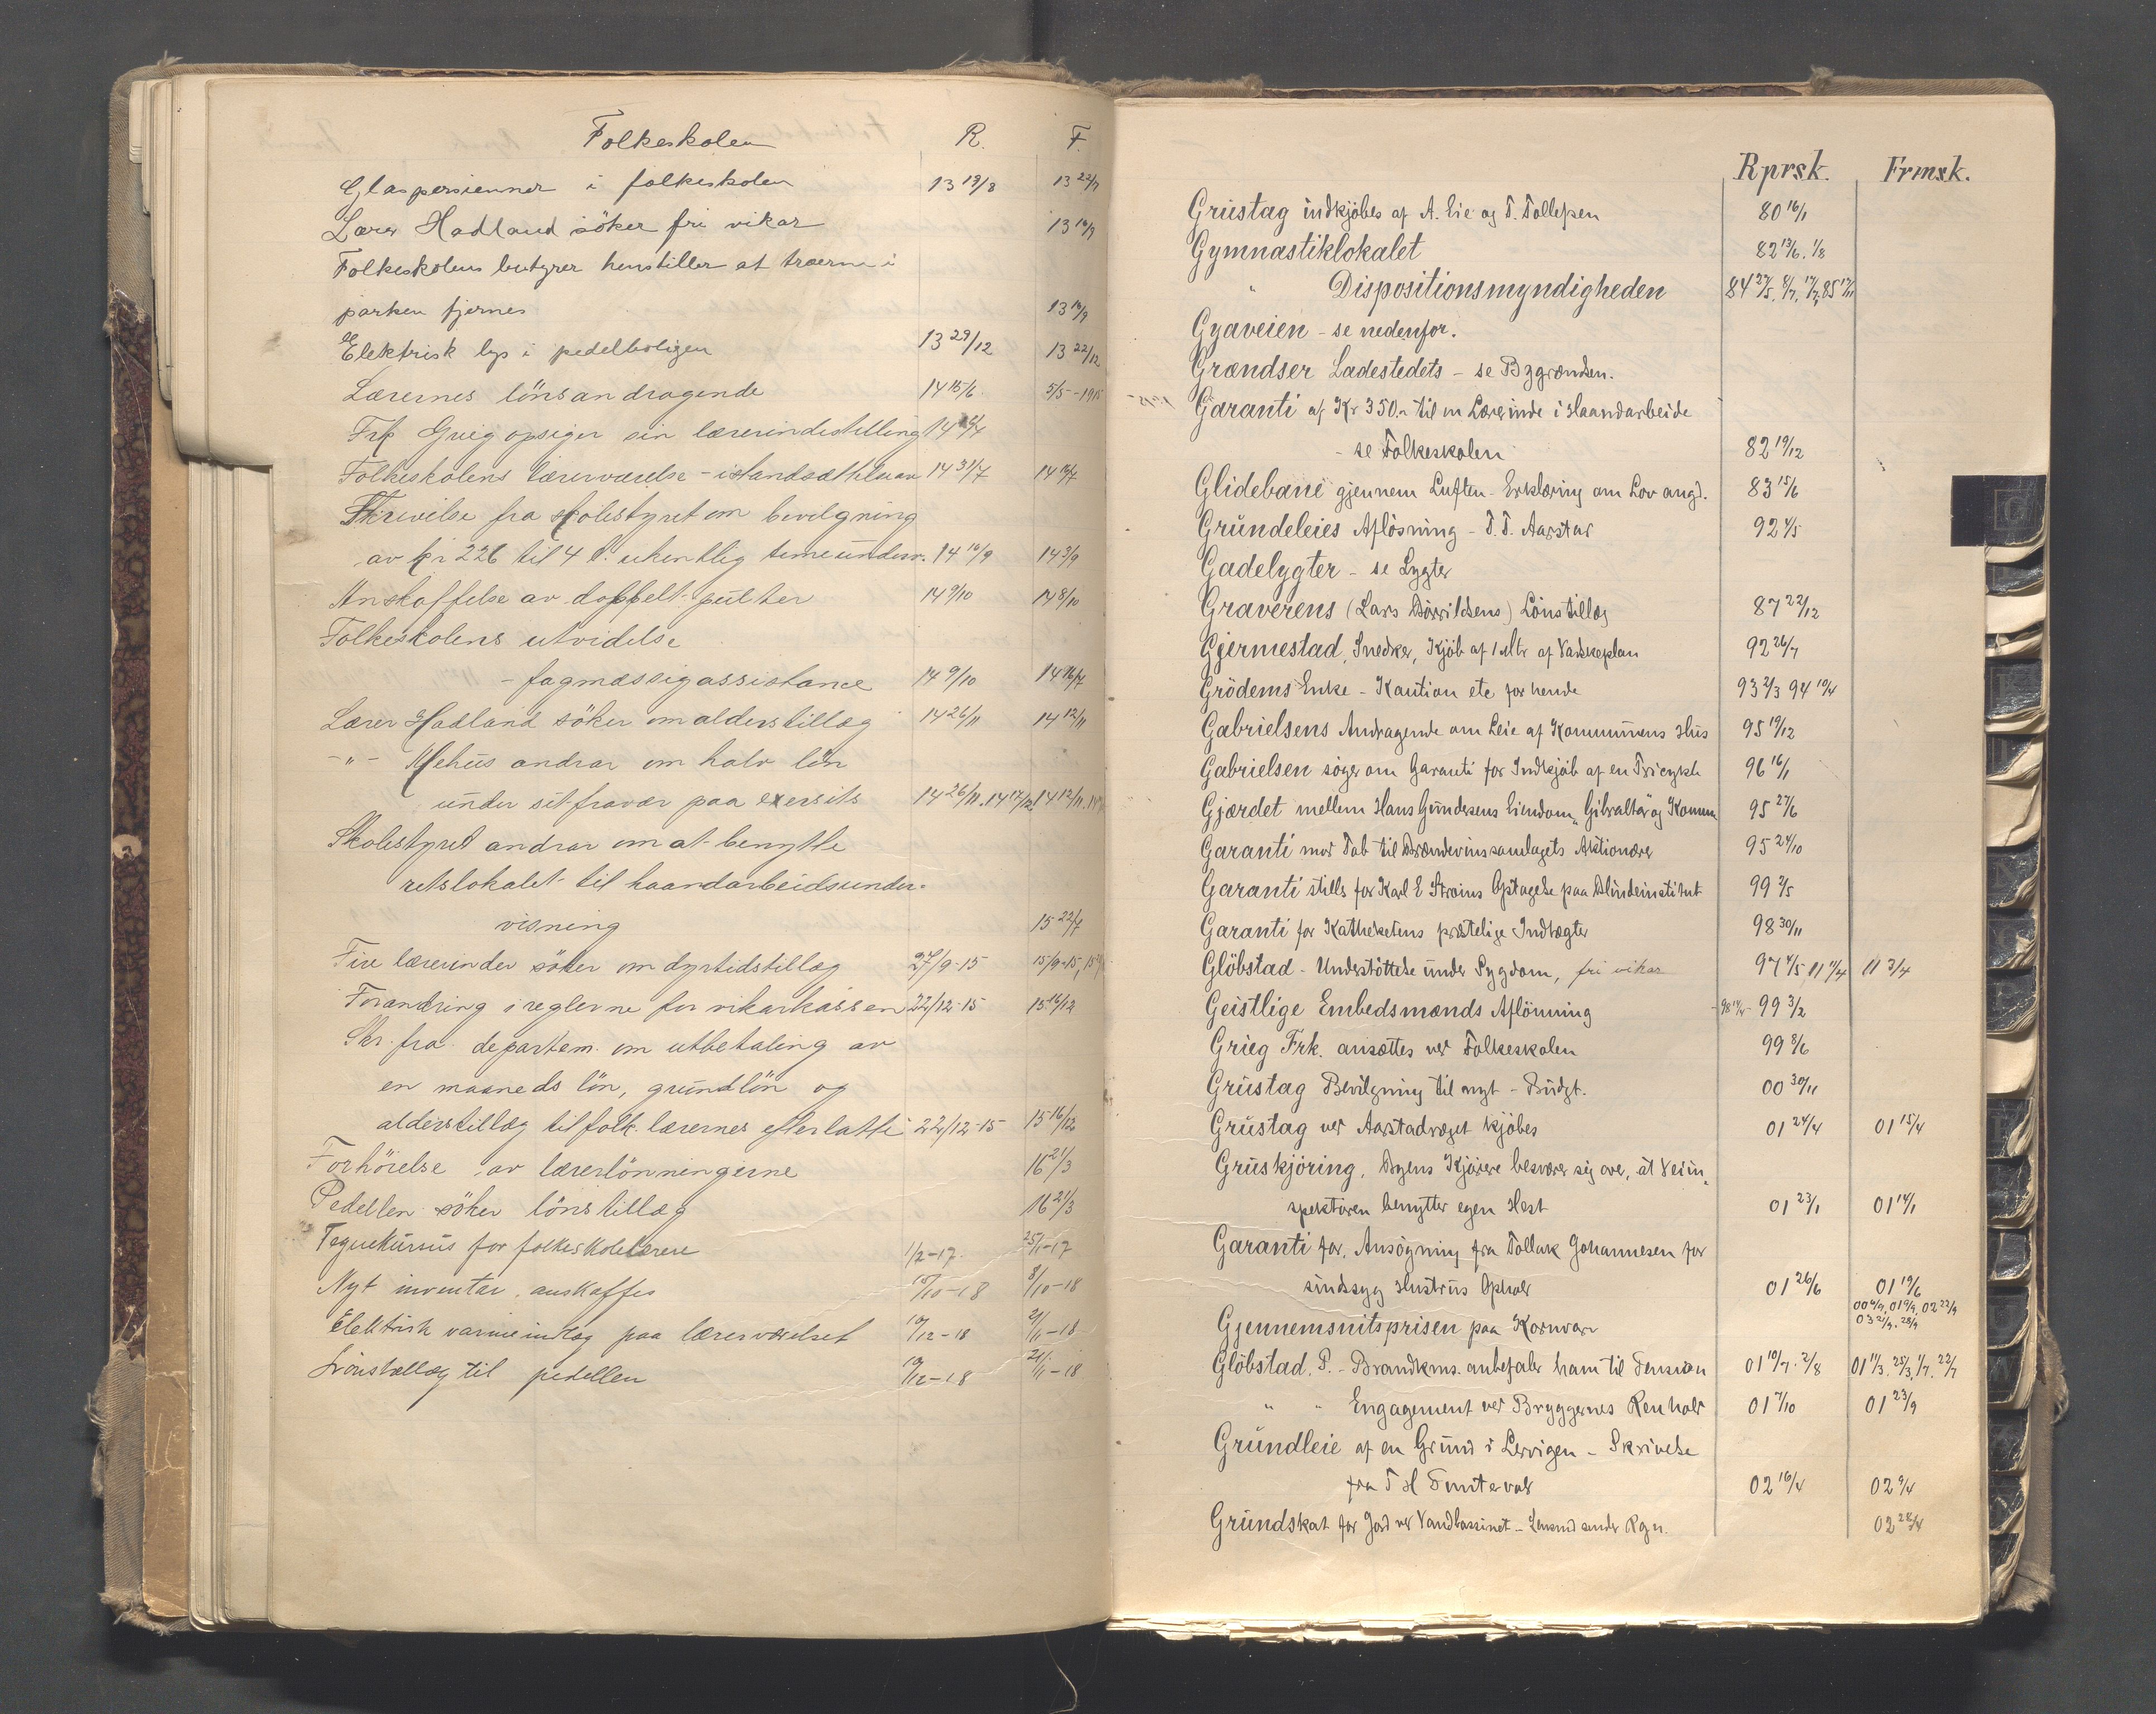 Folkeskolen R. F.
Glaspersienner i folkeskolen 13 19/8 13 22/7
Lærer Hadland söker fri vikar 13 10/9
Folkeskolens bestyrer henstiller at træerne i
parken fjernes 13 10/9
Elektrisk lys i pedelboligen 13 29/12 13 22/12
Lærernes lönsandragende 14 15/6 5/5-1915
Frk Grieg opsiger sin lærerindestilling
Folkeskolens lærerværelse - istandsættelse av 14 31/7
Skrivelse fra skolestyret om bevilgning
av kr 226 til 4 t. ukentlig timeunderv. 14 10/9 14 3/9
Anskaffelse av doppelt-pulter 14 9/10 14 8/10
Folkeskolens utvidelse
- fagmæssig assistance 14 9/10
Lærer Hadland söker om alderstillæg 14 26/11 14 12/11
-"- Mehus andrar om halv lön
under sit fravær paa exersits 14 26/11. 14 17/12 14 12/11.
Skolestyret andrar om at benytte
retslokalet til haandarbeidsunder-
visning 15 22/7
Fire lærerinder söker om dyrtidstillæg 27/9-15 15/9-15,
Forandring i reglerne for vikarkassen 22/12-15 15 16/12
Skr. fra departem. om utbetaling av
en maaneds lön, grundlön og
alderstillæg til folk. lærernes efterlatte 22/12-15 15 16/12
Forhöielse av lærerlönningerne 16 21/3
Pedellen söker lönstillæg 16 21/3
Tegnekursus for folkeskolelærere 1/2-17. 25/1-17
Nyt inventar anskaffes 10/10-18 8/10-18
Elektrisk varmeindlæg paa lærerværelset 19/12-18 21/11-18
Lönstillæg til pedellen 19/12-18 21/11-18
Rprsk. Frmsk.
Grustag indkjöbes af A. Lie og T. Tollefsen 80 16/1
Gymnastiklokalet 82 13/6. 1/8
" Dispositionsmyndigheden 84 27/5, 8/7, 17/7, 85 17/11
Gyaveien - se nedenfor.
Grændser Ladestedets - se Bygrændsen.
Garanti af Kr 350.- til en Lærerinde i Haandarbeide
- se Folkeskolen 82 19/12
Glidebane gjennem Luften - Erklæring om Lov angd. 83 15/6
Grundeleies Aflösning - T. T. Aarstad 92 4/5
Gadelygter - se Lygter
Graverens (Lars Bowildsens) Lönstillæg 87 22/12
Gjermestad, Snedker, Kjöb af 1 Mtr af Vaskeplan 92 26/7
Grödems Enke - Kaution etc for hende 93 2/3 94 19/4
Gabrielsens Andragende om Leie af Kommunens Hus 95 19/12
Gabrielsen söger om Garanti for Indkjöb af en Tricykle 96 16/1
Gjærdet mellem Hans Gundersens Eiendom "Gibraltar" og Komm 95 27/6
Garanti mod Tab til Brændevinssamlagets Aktionærer 95 24/10
Garanti stilles for Karl E Ströms Optagelse paa Blindeinstitut 99 2/5
Garanti for Kathekesens præstelige Indtægter 98 30/11
Glöbstad - Understöttelse under Sygdom, fri vikar 97 4/5 11 11/4 11 3/4
Geistlige Embedsmænds Aflönning 99 3/2
Grieg Frk. ansættes ved Folkeskolen 99 8/6
Grustag Bevilgning til nyt - Budgt. 00 30/11
Grustag ved Aarstadvæget kjöbes 01 24/4 01 15/4
Gruskjöring, Byens Kjörere besværer sig over, at Veiin-
spektören benytter egen Hest 01 23/1 01 14/1
Garanti for, Ansögning fra Tollak Johannesen for
sindssyg Hustrus Ophold 01 26/6 01 19/6
00 6/9, 01 9/9, 02 22/9
03 21/9. 28/9
Gjennemsnitsprisen paa Kornvarer
Glöbstad, P. - Brandkms. anbefaler ham til Pension 01 10/7. 2/8 01 11/3. 25/3, 1/7. 22/7
" " Engagement ved Bryggernes Renhold 01 7/10 01 23/9
Grundleie af en Grund i Lervigen - Skrivelse
fra T H Tinnteval 02 16/4 02 9/4
Grundskat for Jord ved Vandbassinet - Lensmd sender Regn. 02 28/4